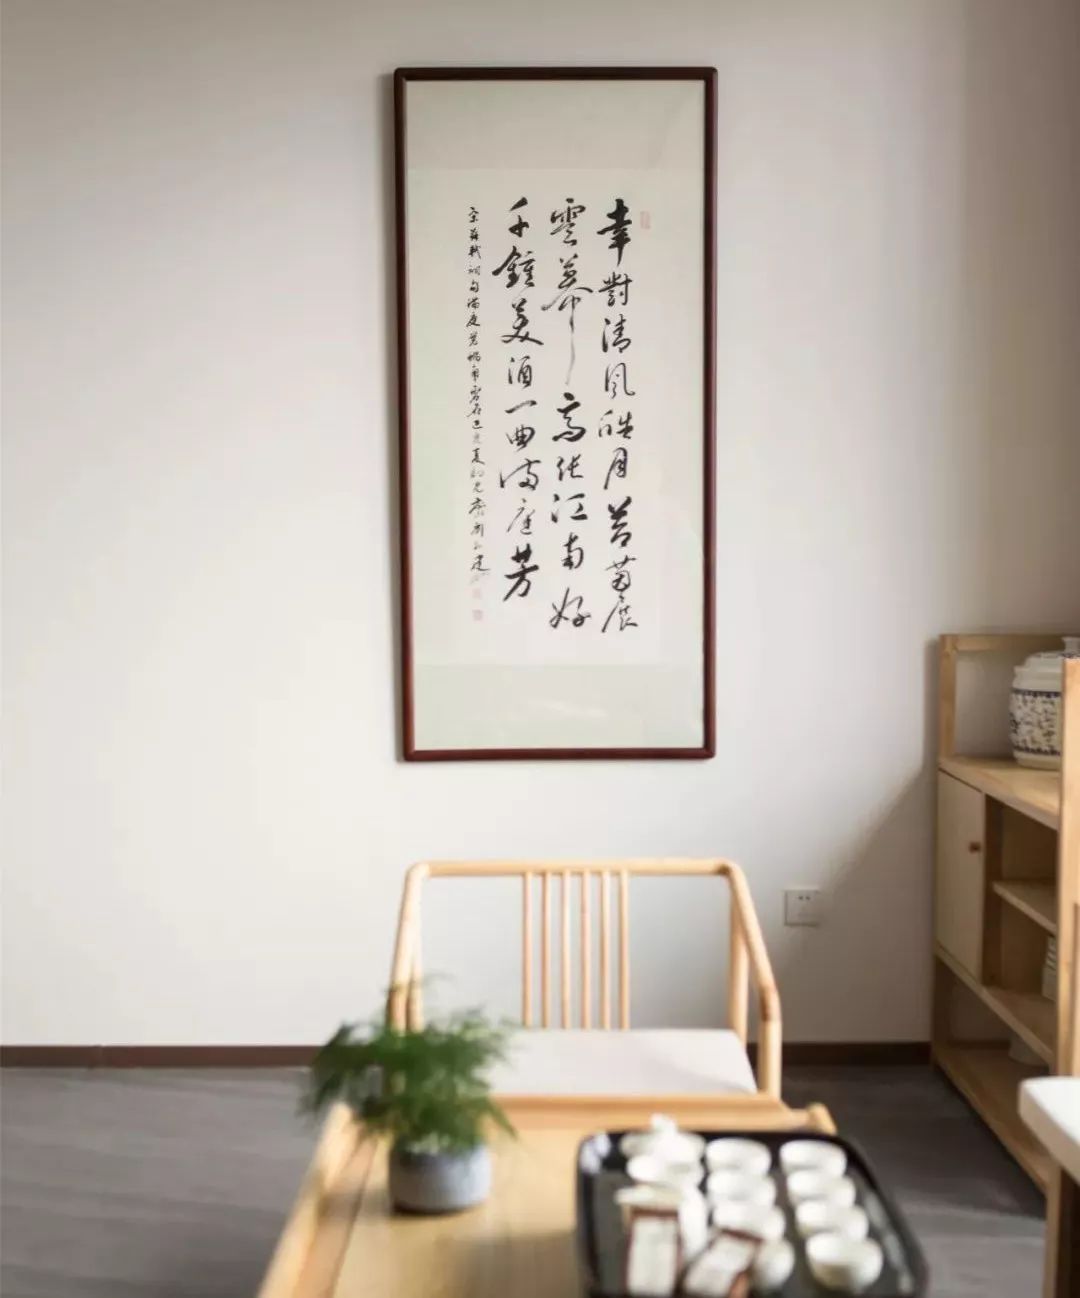 幸對清風皓月苔茵展
雲幕高張江南好
千鍾美酒一曲滿庭芳
宋蘇軾詞句滿庭芳蝸角虛名己亥夏